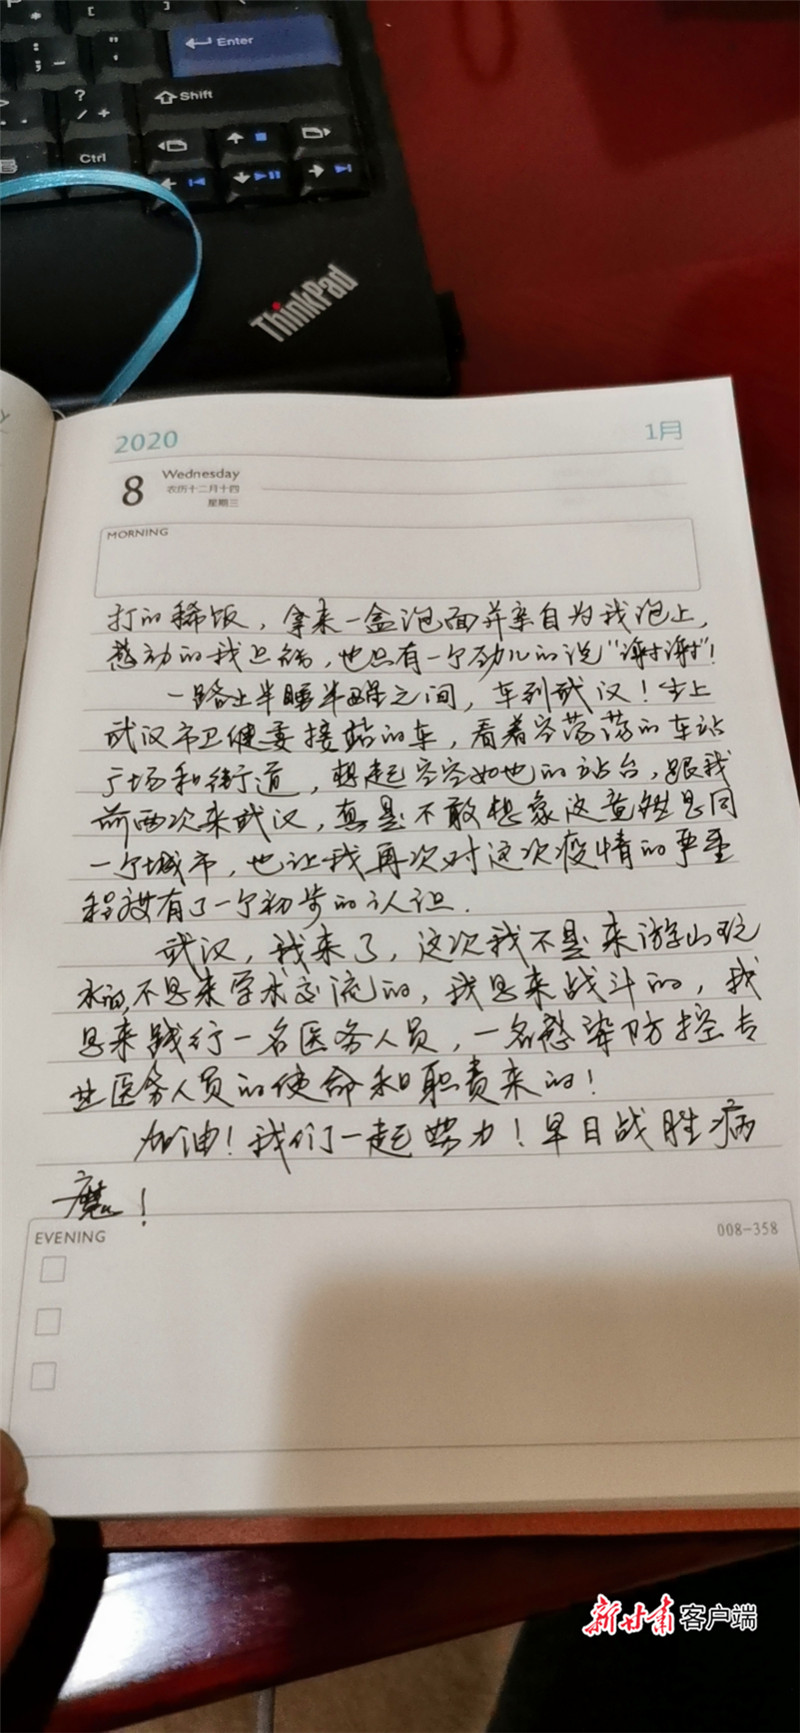 Enter
Shift
Ctrl
ThinkPad
2020
1月
8
Wednesday
农历十二月十四
星期三
MORNING
打的稀饭，拿来一盒泡面并亲自为我泡上，
感动的我，也只有一个劲儿的说“谢谢”！
一路上半睡半醒之间，车到武汉！坐上
武汉市卫健委接站的车，看着空荡荡的车站
广场和街道，想起空空如也的站台，跟我
前两次来武汉，真是不敢想象这竟然是同
一个城市，也让我再次对这次疫情的严重
程度有了一个初步的认识.
武汉，我来了，这次我不是来游山玩
水的,不是来学术交流的，我是来战斗的，我
是来践行一名医务人员，一名感染防控专
业医务人员的使命和职责来的！
加油！我们一起努力！早日战胜病
魔！
EVENING
008-358
新甘肃客户端